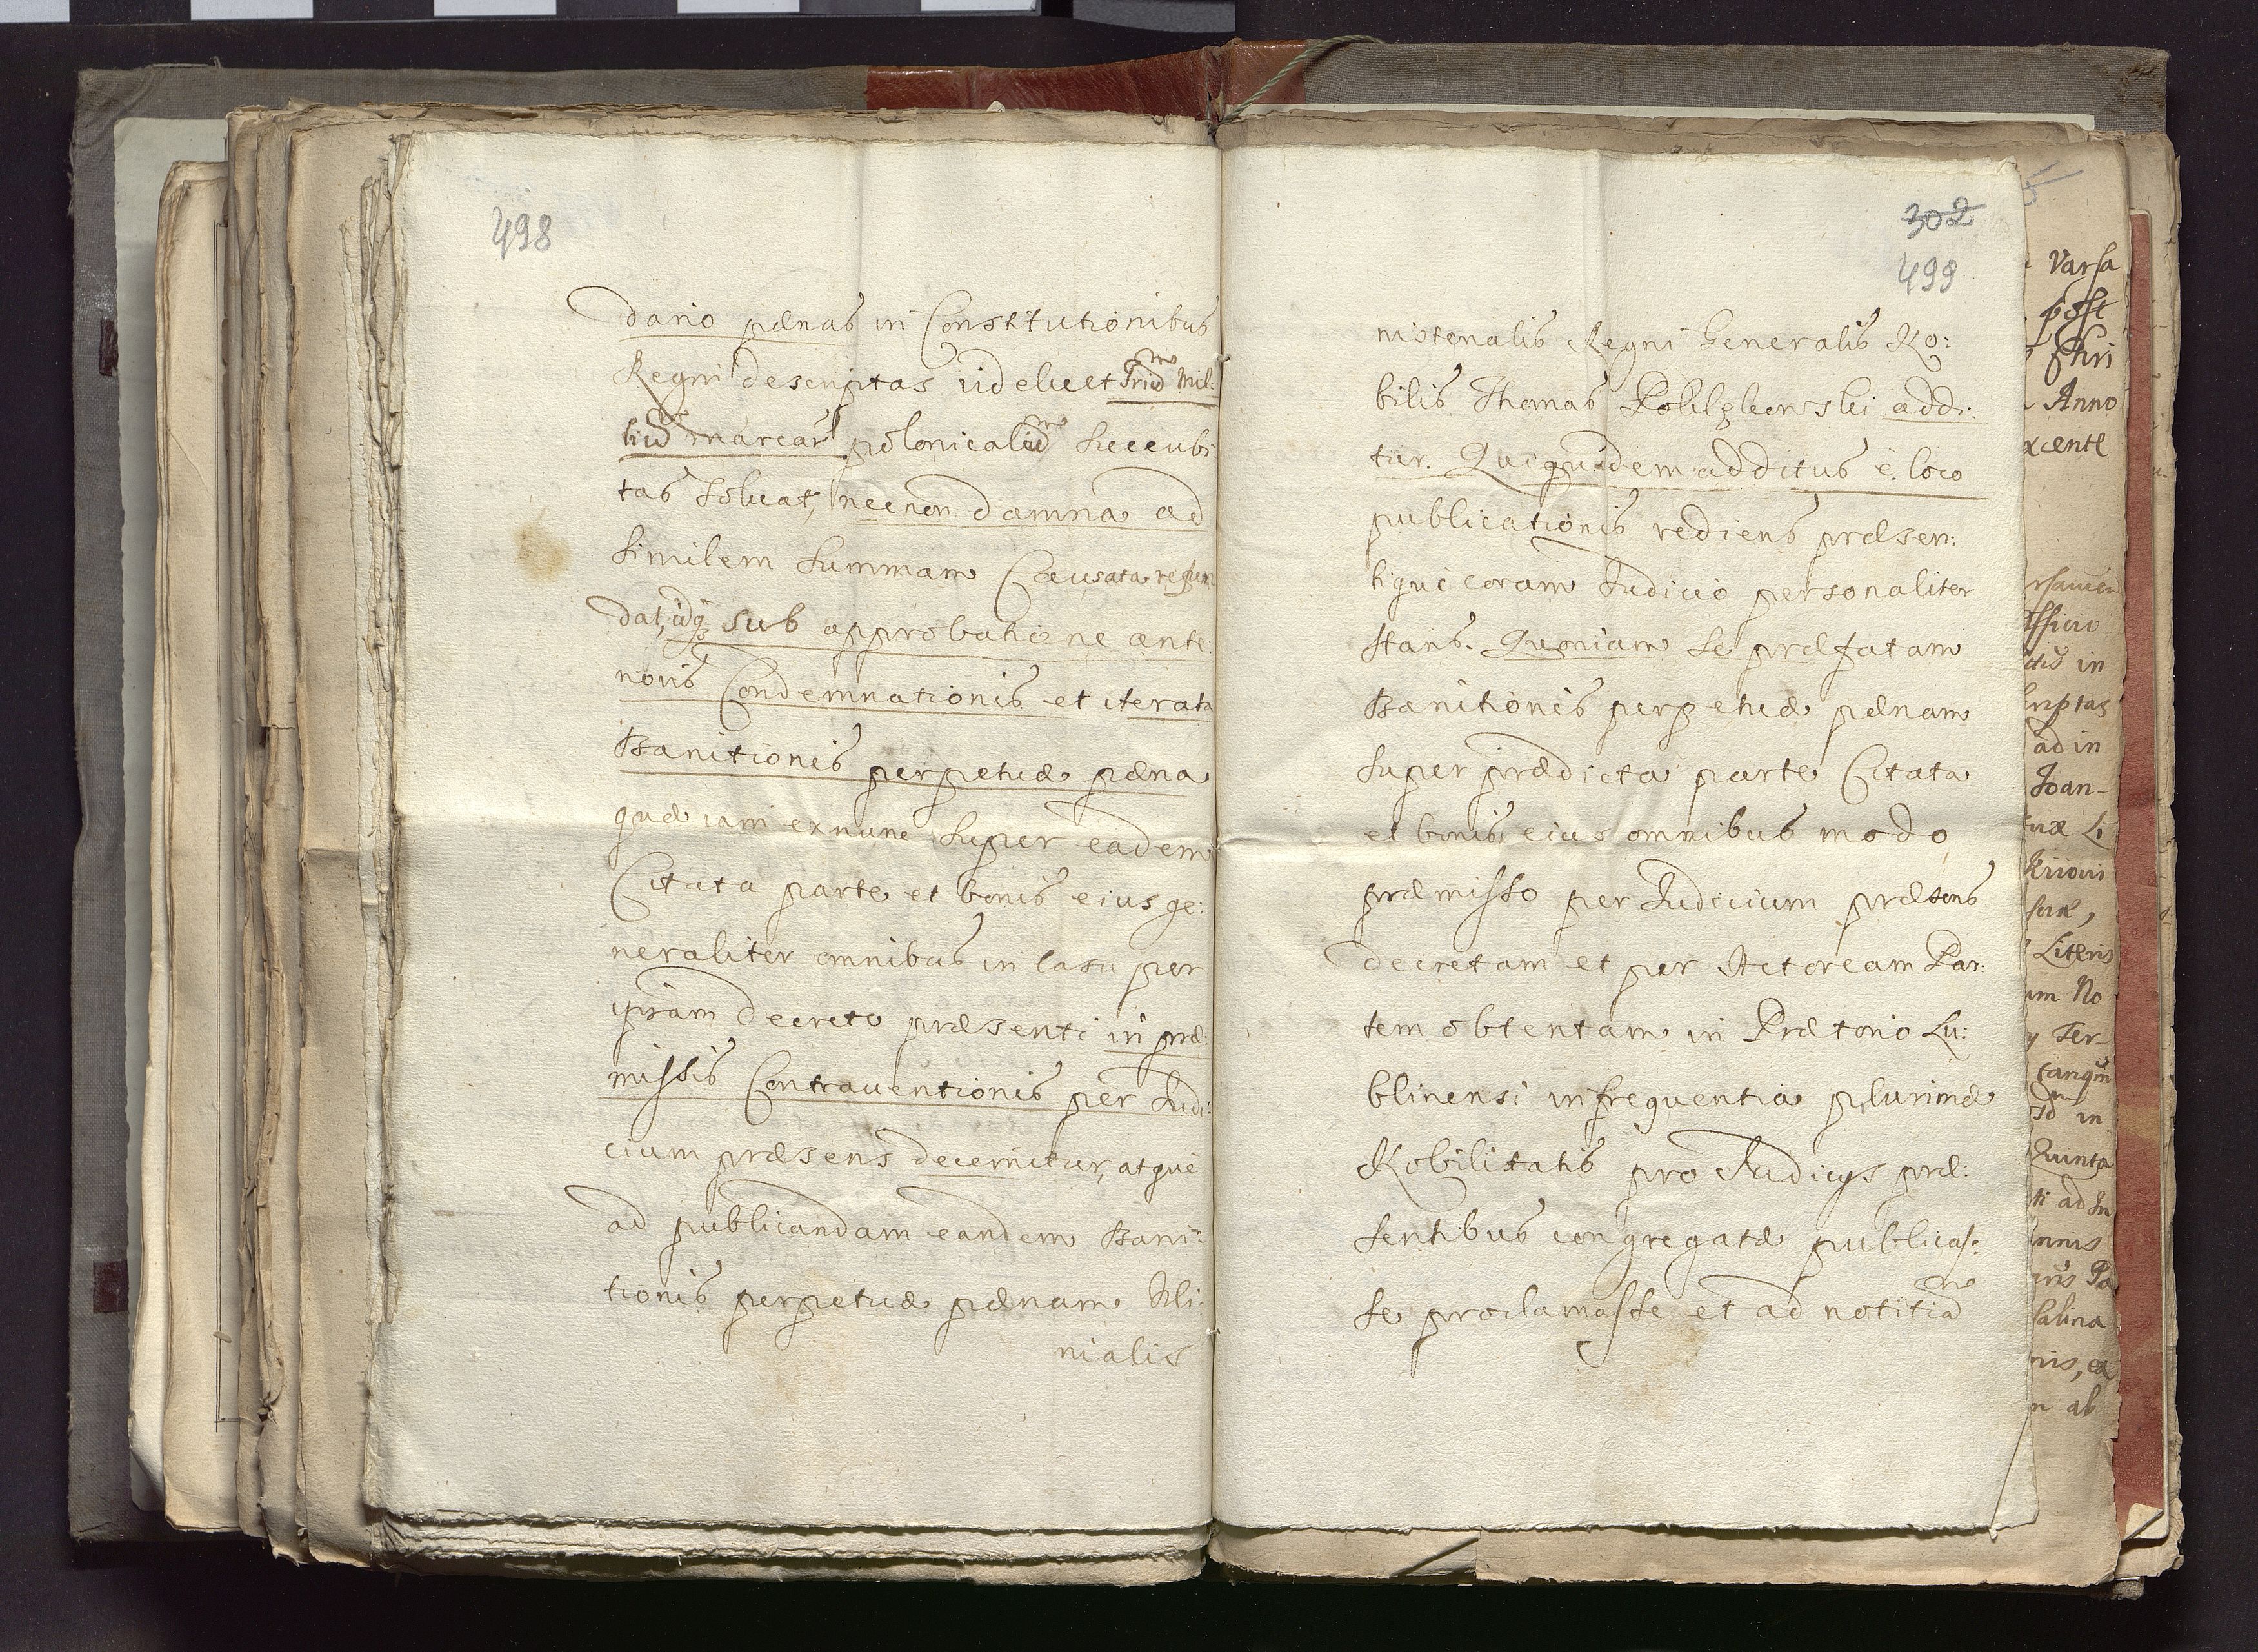 498
dario pœnas in Constitutionibus
Regni descriptas videlicet Triũ Mil:
liũ marcar polonicaliũ succubi
tas soluat, necnon damna ad
similem summam Causata refun
dat, idq sub approbatione ante:
rioris Condemnationis et iterata
Banitionis perpetuæ pœna
quæ iam exnunc super eadem
Citata parte et bonis eius ge:
neraliter omnibus in casu per
ipsam decreto præsenti in præ:
missis Contrauentionis per Iudi:
cium præsens decernitur, atque
ad publicandam eandem Bani:
tionis perpetuæ pœnam Mi:
nialis
302
499
nisterialis Regni Generalis No:
bilis Thomas addi:
tur. Quiquidem additus è loco
publicationis rediens præsen:
tique coram Iudicio personaliter
stans. Quoniam se præfatam
Banitionis perpetuæ pœnam
super prædicta parte Citata
et bonis eius omnibus modo
præmisso per Iudicium præsens
decretam et per Actoream Par:
tem obtentam in Prætorio Lu:
blinensi in frequentia plurimæ
Nobilitatis pro Iudicijs præ:
sentibus congregatæ publicas:
se proclamasse et ad notitiã
Varsa
post
Chri
Anno
Officio
in
ad in
Joan-
Li
Literis
No
Ter-
in
Quinta
ad In
Pa
ab